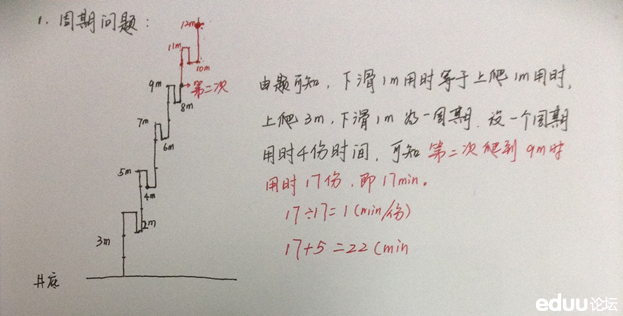 1. 周期问题:
12m
11m
10m
9m
第二次
8m
7m
6m
5m
4m
3m
2m
井底
由题可知,下滑1m用时等于上爬1m用时,
上爬3m,下滑1m为一周期.设一个周期
用时4份时间,可知第二次爬到9m时
用时17份,即17min。
17÷17=1(min/份)
17+5=22(min
eduu论坛